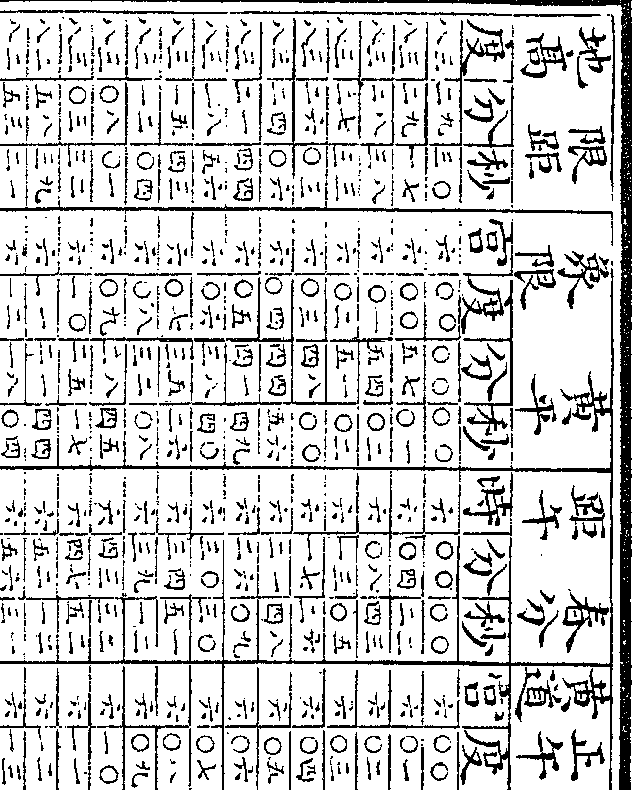 黃道正午 春分距午 黃平象限 限距地高
宮 度 時 分 秒 宮 度 分 秒 度 分 秒
六 〇〇 六 〇〇 〇〇 六 〇〇 〇〇 〇〇 八三 二九 三〇
六 〇一 六 〇四 二二 六 〇〇 五七 〇一 八三 二九 一七
六 〇二 六 〇八 四三 六 〇一 五四 〇二 八三 二八 三八
六 〇三 六 一三 〇五 六 〇二 五一 〇二 八三 二七 三三
六 〇四 六 一七 二六 六 〇三 四八 〇〇 八三 二六 〇三
六 〇五 六 二一 四八 六 〇四 四四 五六 八三 二四 〇六
六 〇六 六 二六 〇九 六 〇五 四一 四九 八三 二一 四四
六 〇七 六 三〇 三〇 六 〇六 三八 四〇 八三 一八 五六
六 〇八 六 三四 五一 六 〇七 三五 二六 八三 一五 四三
六 〇九 六 三九 一二 六 〇八 三二 〇八 八三 一二 〇四
六 一〇 六 四三 三二 六 〇九 二八 四五 八三 〇八 〇一
六 一一 六 四七 五二 六 一〇 二五 一七 八三 〇三 三二
六 一二 六 五二 一二 六 一一 二一 四四 八二 五八 三九
六 一三 六 五六 三一 六 一二 一八 〇四 八二 五三 二一